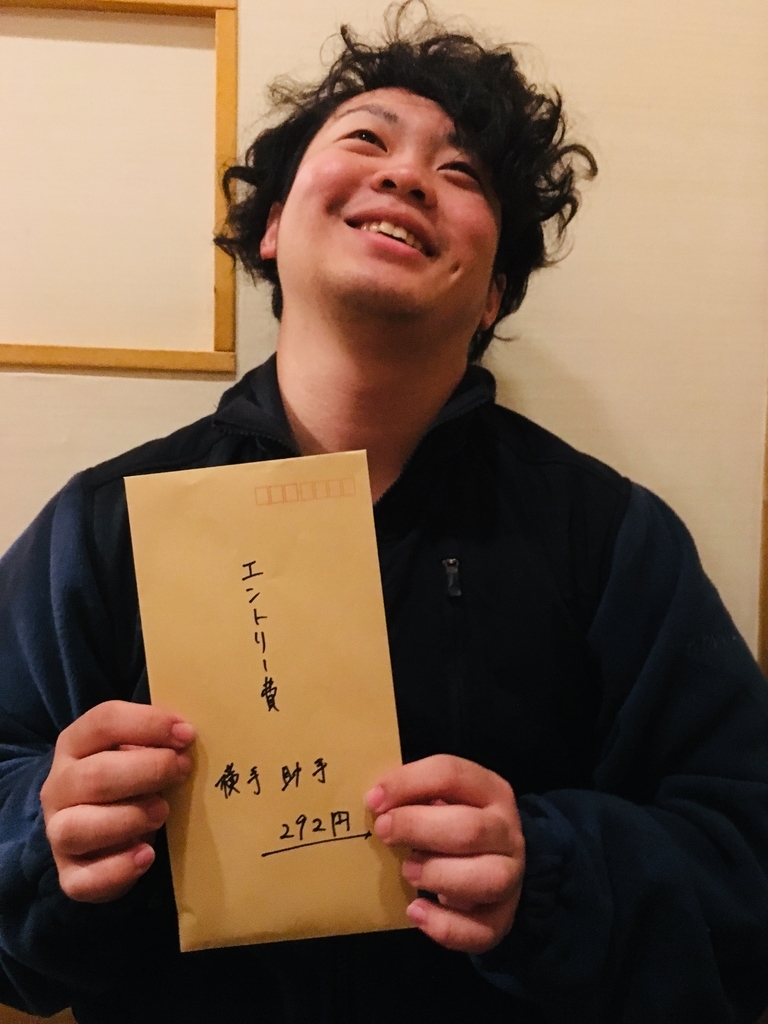 エントリー費
横手 助手
292円